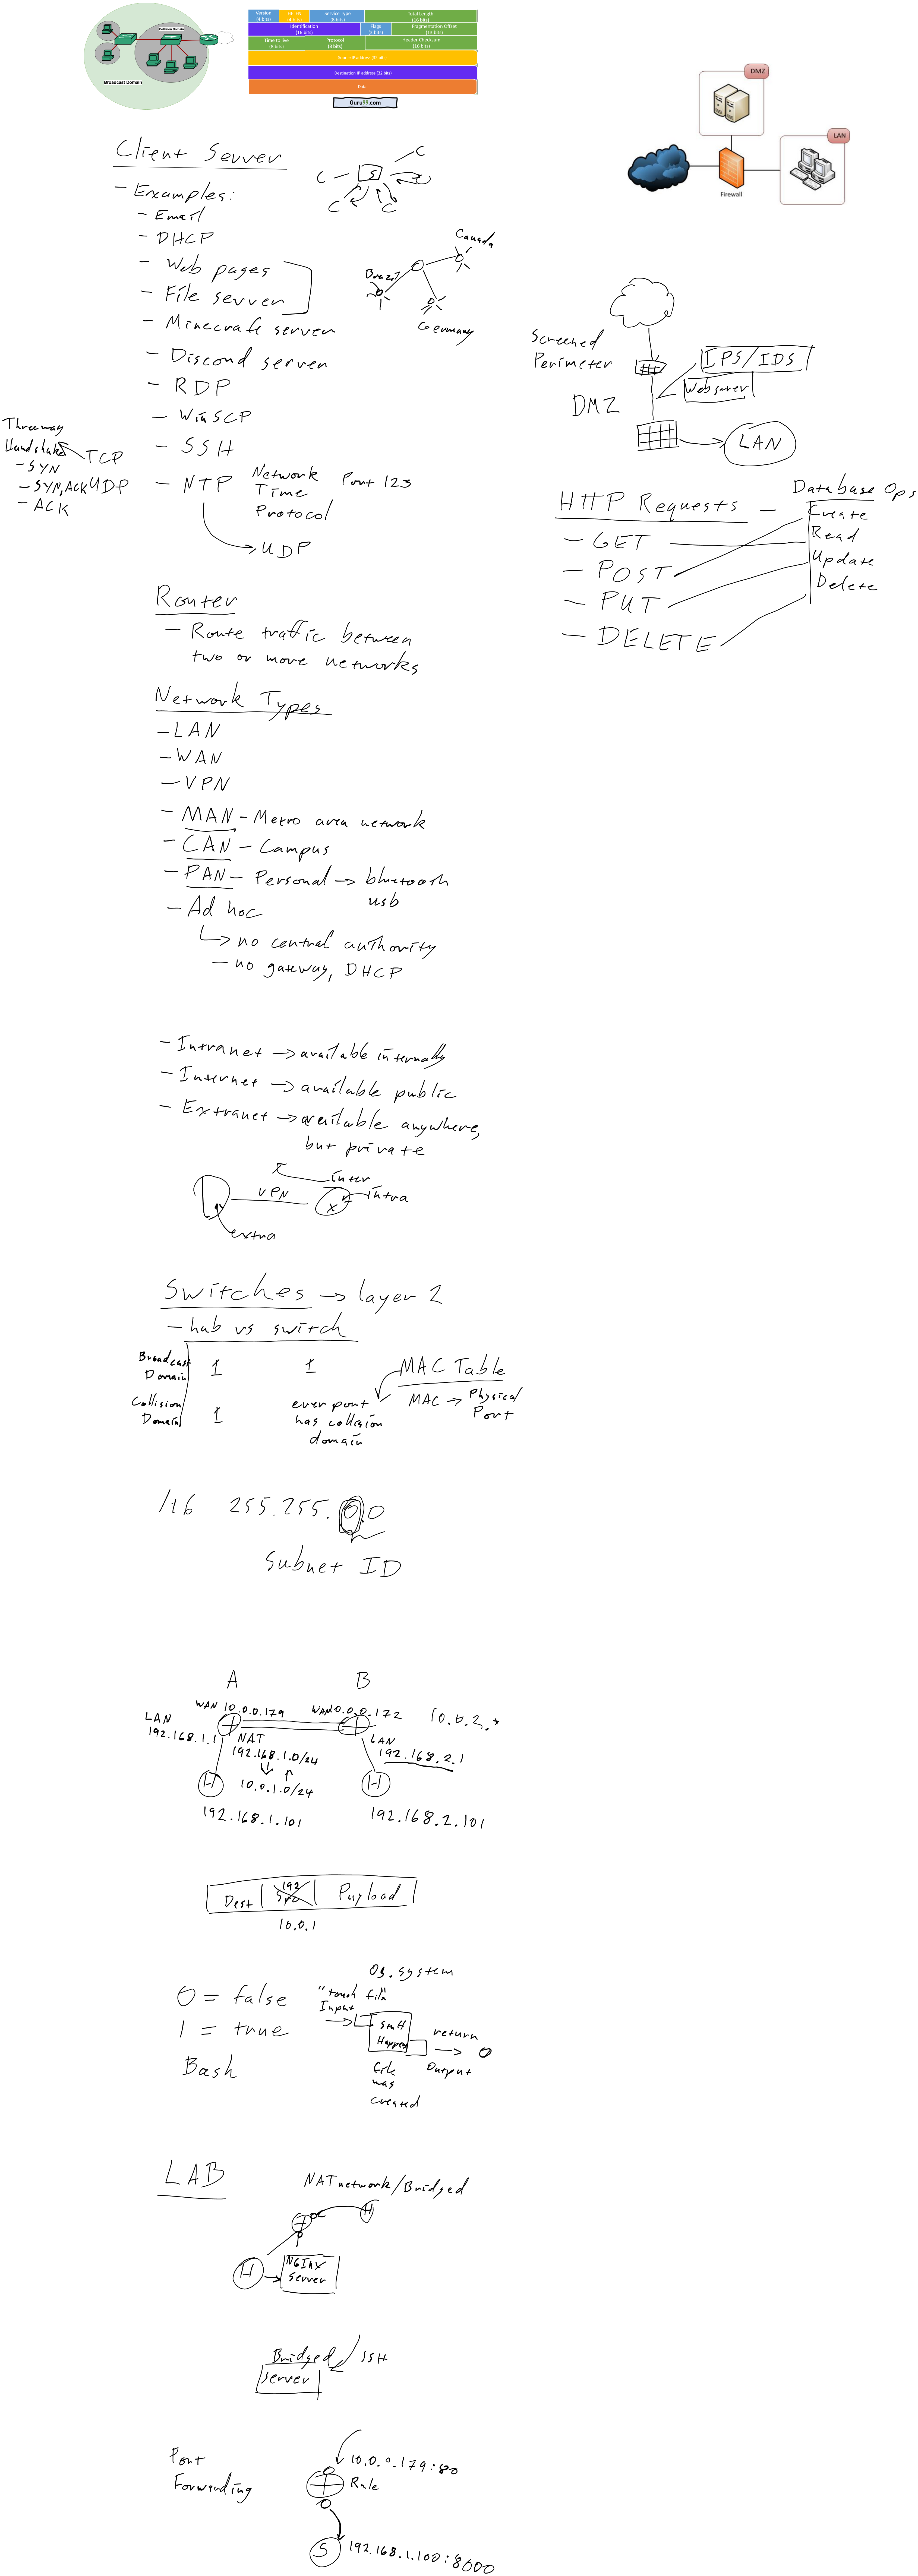 Collision Domain
Broadcast Domain
Version
(4 bits)
HELEN
(4 bits)
Service Type
(8 bits)
Total Length
(16 bits)
Identification
(16 bits)
Flags
(3 bits)
Fragmentation Offset
(13 bits)
Time to live
(8 bits)
Protocol
(8 bits)
Header Checksum
(16 bits)
Source IP address (32 bits)
Destination IP address (32 bits)
Data
Guru99.com
DMZ
LAN
Firewall
Client Server
C
C S
C C
- Examples:
- Email
- DHCP
- Web pages
- File server
- Minecraft server
- Discord server
- RDP
- WinSCP
- SSH
- NTP Network Time Protocol Port 123
UDP
Canada
Brazil
Germany
Three way
Handshake TCP
- SYN
- SYN, ACK UDP
- ACK
Screened
Perimeter
IPS/IDS
Webserver
DMZ
LAN
HTTP Requests - Database Ops
- GET
- POST
- PUT
- DELETE
Create
Read
Update
Delete
Router
- Route traffic between
two or more networks
Network Types
- LAN
- WAN
- VPN
- MAN - Metro area network
- CAN - Campus
- PAN - Personal → bluetooth
usb
- Ad hoc
↳ no central authority
- no gateway, DHCP
- Intranet → available internally
- Internet → available public
- Extranet → available anywhere,
but private
inter
VPN X intra
extra
Switches → layer 2
- hub vs switch
Broadcast
Domain 1 1
Collision
Domain 1 ever port
has collision
domain
MAC Table
MAC → Physical
Port
/16 255.255.0.0
Subnet ID
A B
WAN 10.0.0.179 WAN 10.0.0.172 10.0.2.*
LAN
192.168.1.1
NAT
192.168.1.0/24
10.0.1.0/24
LAN
192.168.2.1
H H
192.168.1.101 192.168.2.101
192
Dest Src Payload
10.0.1
0 = false
1 = true
Bash
Os.system
"touch file"
Input
Stuff
Happens
return
Output 0
file
was
created
LAB
NATnetwork/Bridged
H
H
NGINX
Server
Bridged SSH
Server
Port
Forwarding
10.0.0.179:80
Rule
S 192.168.1.100:8000